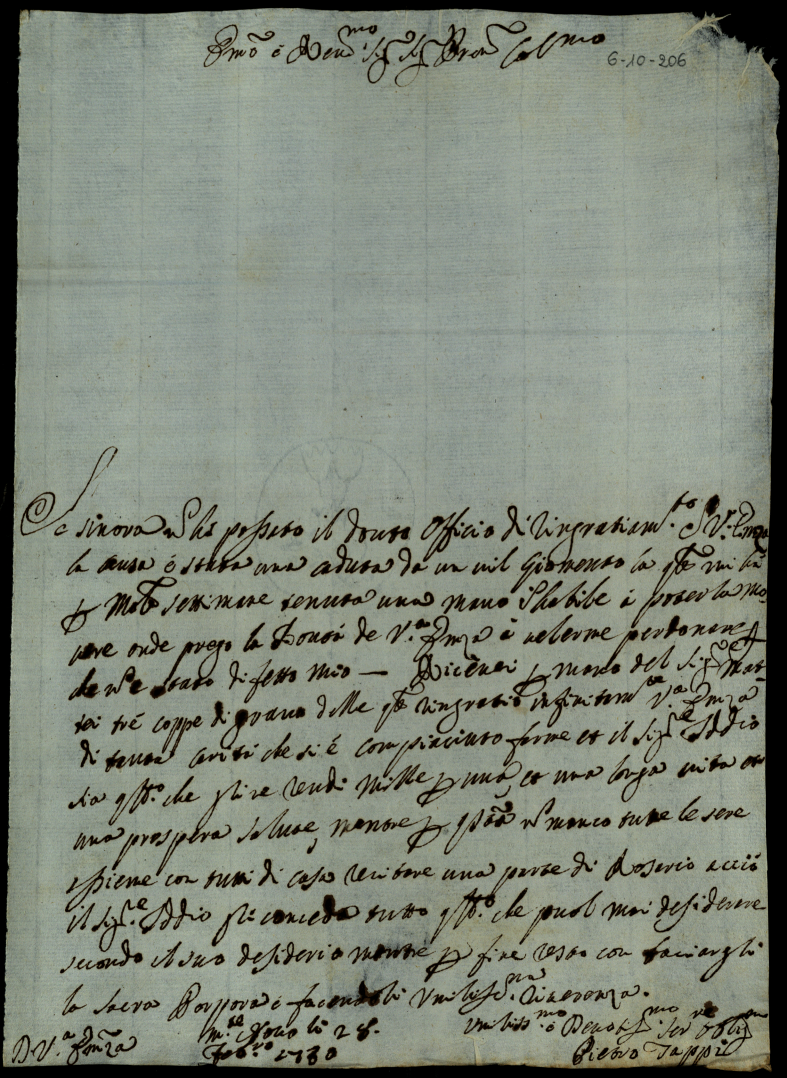 Emo e Revmo Sig Sig Pron Colmo
6-10-206
Se sinora n ho passato il douto Officio di ringratiamto V.a Emza
la causa è stata una caduta da un vil Giomento la qle mi ha
p molte settimane tenuta una mano Ihabile à poterla mo-
vere onde prego la Bontà de V.a Emza à volerme perdonare p
che n è stato difetto mio — Ricevei p mano del Sigre Mat-
tei trè coppe di grano delle qle ringratio infinitamte V.a Emza
di tanta carità che si è compiaciuto farme et il Sigre Iddio
sia qllo che glie rendi mille p una, et una longa vita et
una prospera salute, mentre p n manco tutte le sere
assieme con tutti di casa recitare una parte di Rosario acciò
il Sigre Iddio gli conceda tutto qllo che puol mai desiderare
secondo il suo desiderio mentre p fine resto con baciargli
la sacra Porpora e facendoli Umilissma riverenza.
D V.a Emza
li 28.
Febro 1730
Umilissmo e Devotismo Serre Obligmo
Pietro Tappi